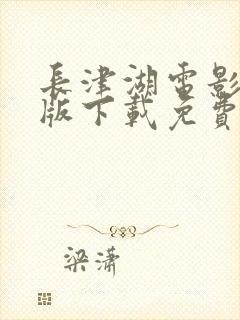 長津湖電影
版下載免費
梁瀟